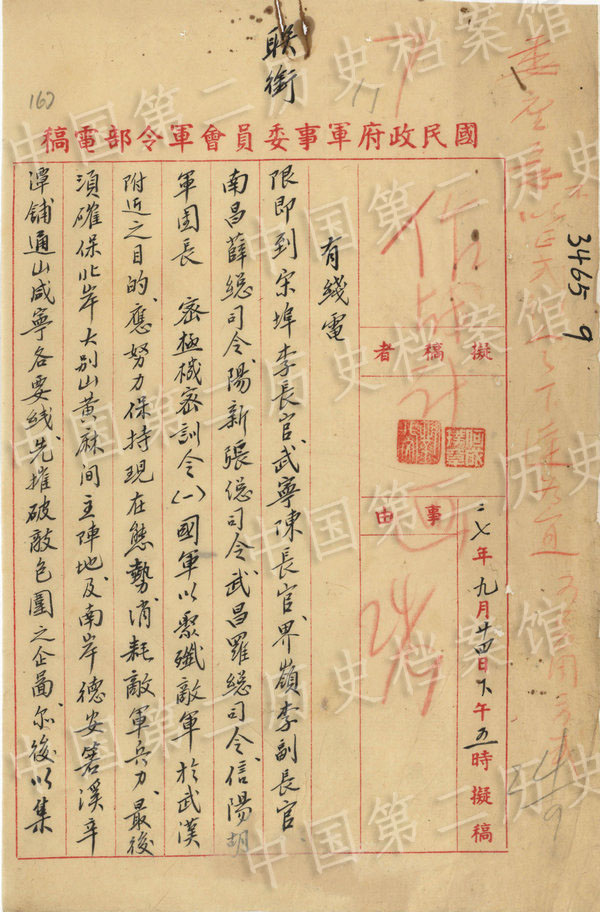 聯銜
162
3465
9
國民政府軍事委員會軍令部電稿
擬稿者
事由
二七年九月廿四日下午五時擬稿
24/9
有綫電
限即到宋埠李長官武寧陳長官界嶺李副長官
南昌薛總司令陽新張總司令武昌羅總司令信陽胡
軍團長 密極機密訓令(一)國軍以聚殲敵軍於武漢
附近之目的應努力保持現在態勢消耗敵軍兵力最後
須確保北岸大別山黃麻間主陣地及南岸德安箬溪辛
潭鋪通山咸寧各要綫先摧破敵包圍之企圖尔後以集
中国第二历史档案馆